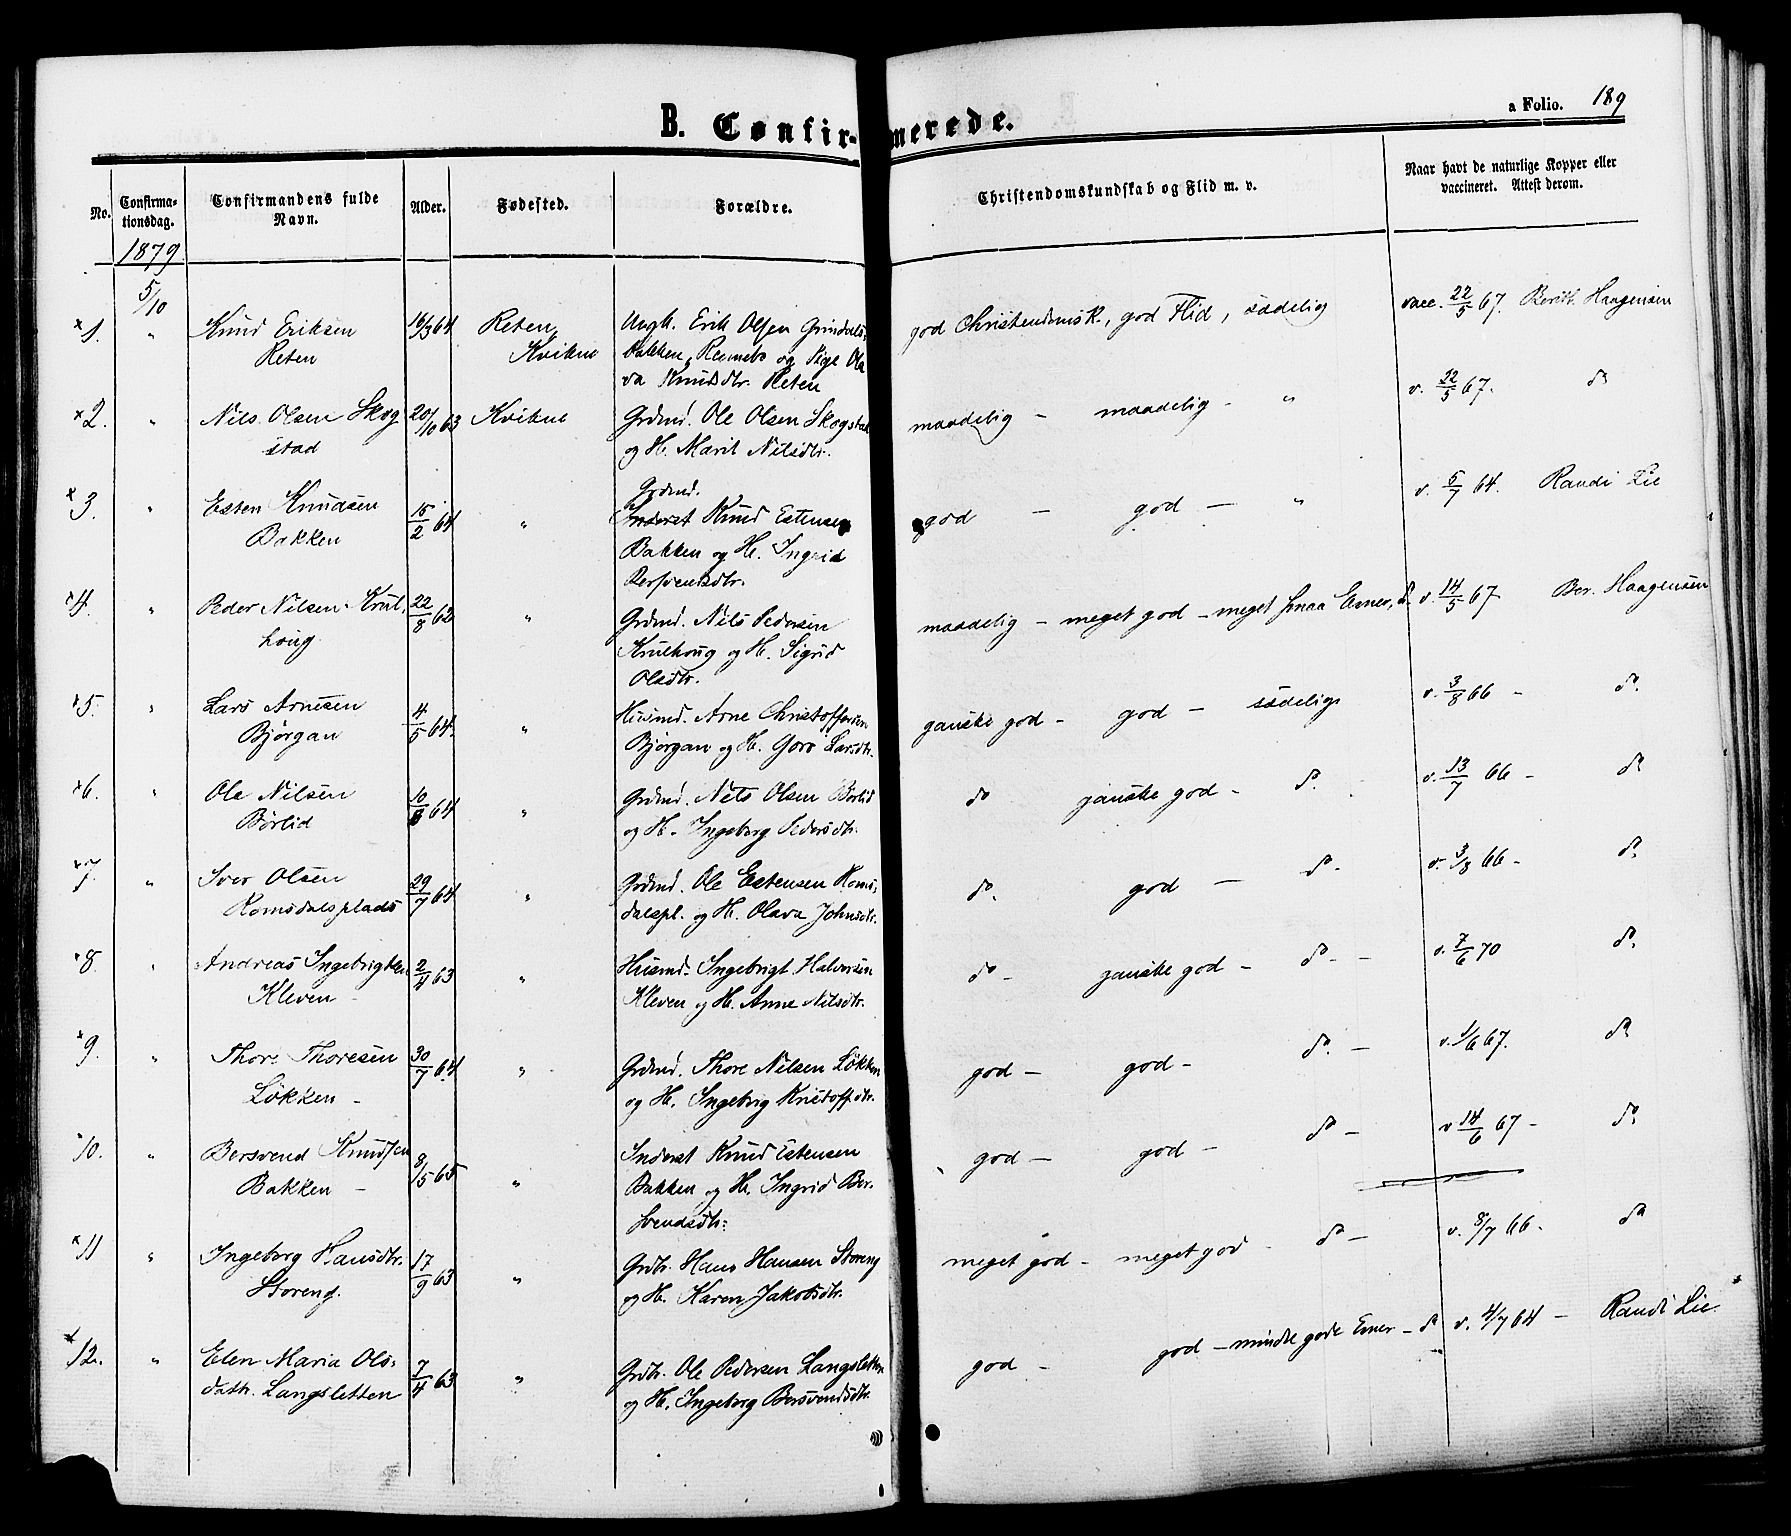 B. Confirmerede.
a Folio. 189
No.
Confirmationsdag.
Confirmandens fulde Navn.
Alder.
Fødested.
Forældre.
Christendomskundskab og Flid m. v.
Naar havt de naturlige Kopper eller vaccineret. Attest derom.
1879
5/10
1. " Knud Eriksen 16/3 64 Reten, Ungk. Erik Olsen Grindals- god Christendomsk., god Flid, sædelig vacc. 22/5 67. Beritt Haagensen
Reten Kvikne bakken, Rennebo og Pige Ola
va Knudsdtr. Reten
2. " Nils Olsen Skog 20/10 63 Kvikne Grdmd. Ole Olsen Skogstad maadelig - maadelig - " v. 22/5 67. do
stad og H. Marit Nilsdtr.
3. " Esten Knudsen 15/2 64 " Grdmd.
Bakken Inderst Knud Estensen god - god - " v. 5/7 64. Randi Lie
Bakken og H. Ingrid
Bersvendsdtr.
4. " Peder Nilsen Krul, 22/8 62 " Grdmd. Nils Pedersen maadelig - meget god - meget smaa Evner, d. v. 14/5 67 Ber. Haagensen
houg Krulhoug og H. Sigrid
Olsdtr.
5. " Lars Arnesen 4/5 64. " Husmd. Arne Christoffersen ganske god - god - sædelig v. 3/8 66 - do.
Bjørgan Bjørgan og H. Goro Larsdtr.
6. " Ole Nilsen 10/8 64 " Grdmd. Nils Olsen Børlid do ganske god - do. v. 13/7 66 - do
Børlid og H. Ingeborg Pedersdtr.
7. " Iver Olsen 29/7 64 " Grdmd. Ole Estensen Roms, do. god - do. v. 3/8 66 - do.
Romsdalsplads dalspl. og H. Olava Johnsdtr.
8. " Andreas Ingebrigtsen 2/4 63 " Husmd. Ingebrigt Halvorsen do - ganske god - do - v. 7/6 70 do.
Kleven - Kleven og H. Anne Nilsdtr.
9. " Thore Thoresen 30/7 64 " Grdmd. Thore Nilsen Løkken god - god - do. - v. 1/6 67. do
Løkken - og H. Ingebrig Kristoff.dtr.
10. " Bersvend Knudsen 8/5 65 " Inderst Knud Estensen god - god - do - v 14/6 67 - do
Bakken - Bakken og H. Ingrid Ber-
svendsdtr.
11 " Ingeborg Hansdtr. 17/9 63 " Grdbr. Hans Hansen Storeng meget god - meget god - do - v. 8/7 66 - do
Storeng. og H. Karen Jakobsdtr.
12. " Elen Maria Ols- 7/4 63 " Grdbr. Ole Pedersen Langsletten god - god - mindre gode Evner - do v. 4/7 64 - Randi Lie
datr. Langsletten og H. Ingeborg Bersvendsdtr.